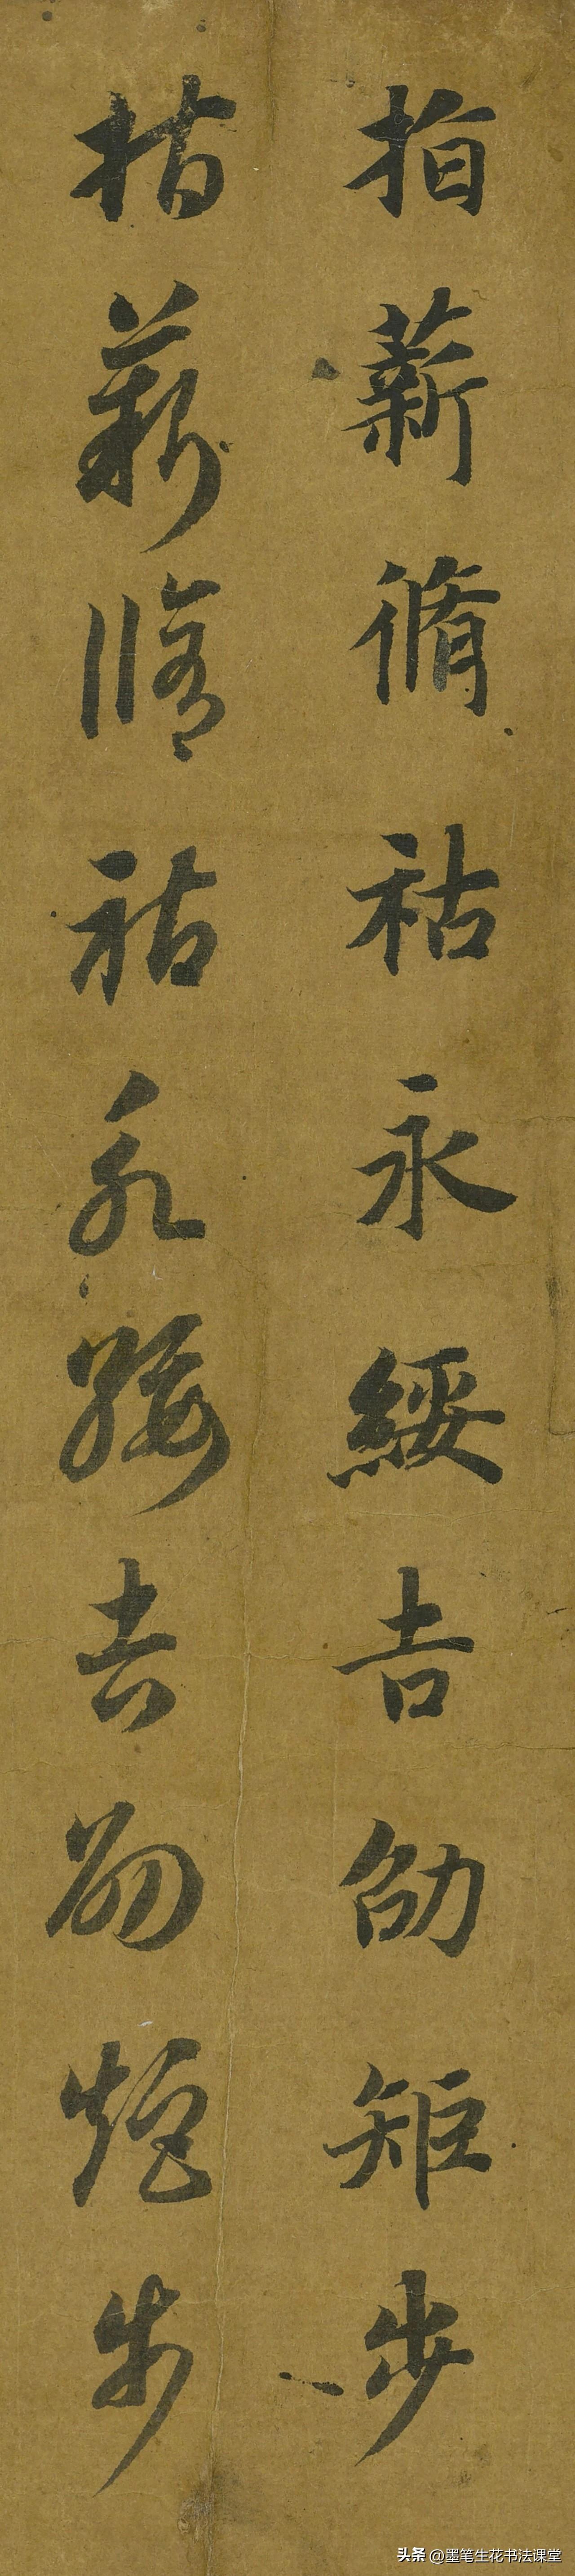 指薪脩祜永綏吉劭矩步
指薪脩祜永綏吉劭矩步
头条 @墨笔生花书法课堂